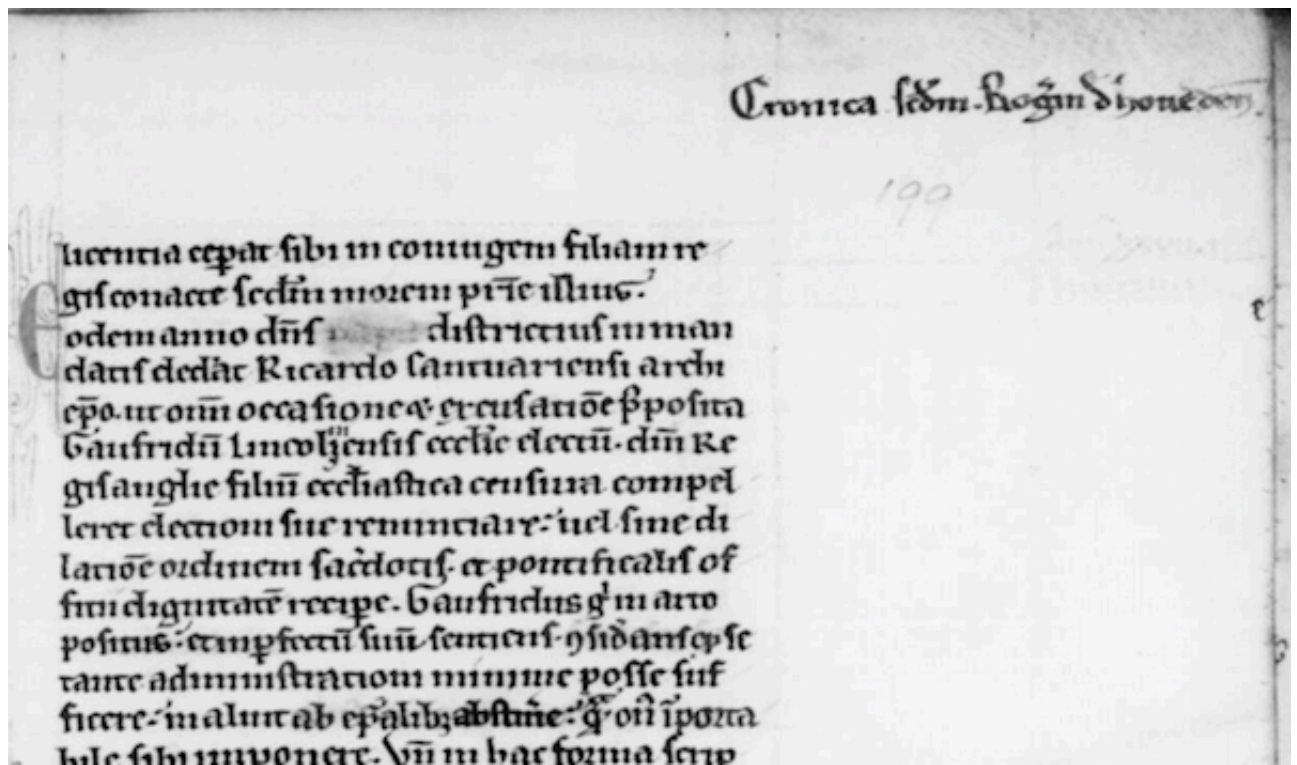 Cronica scd̄m Rog̃m d' houeden
199
licentia cep̱at sibi in coniugem filiam re
gis conacte scd̄m morem pr̄ie illius.
E
odem anno dn̄s districtius in man
datis ded̾at Ricardo Cantuariensi archi
ep̄o. ut om̄i occasione & excusatiōe p̄posita
Gaufridū Lincolniensis eccl̄ie electū. dn̄i Re
gis anglie filiū eccl̄iastica censura compel
leret electioni sue renunciare: uel sine di
latiōe ordinem sac̾dotis. et pontificalis of
ficii dignitatē recip̱e. Gaufridus gͥ in arto
positus: et inp̱fectū suū sentiens. ꝯsid̾ans ꝙ se
tante administrationi minime posse suf
ficere: maluit ab ep̄alibꝫ abstin̄e: qͣ on̾ īporta
bile sibi imponere. Vn̄ in hac forma scrip